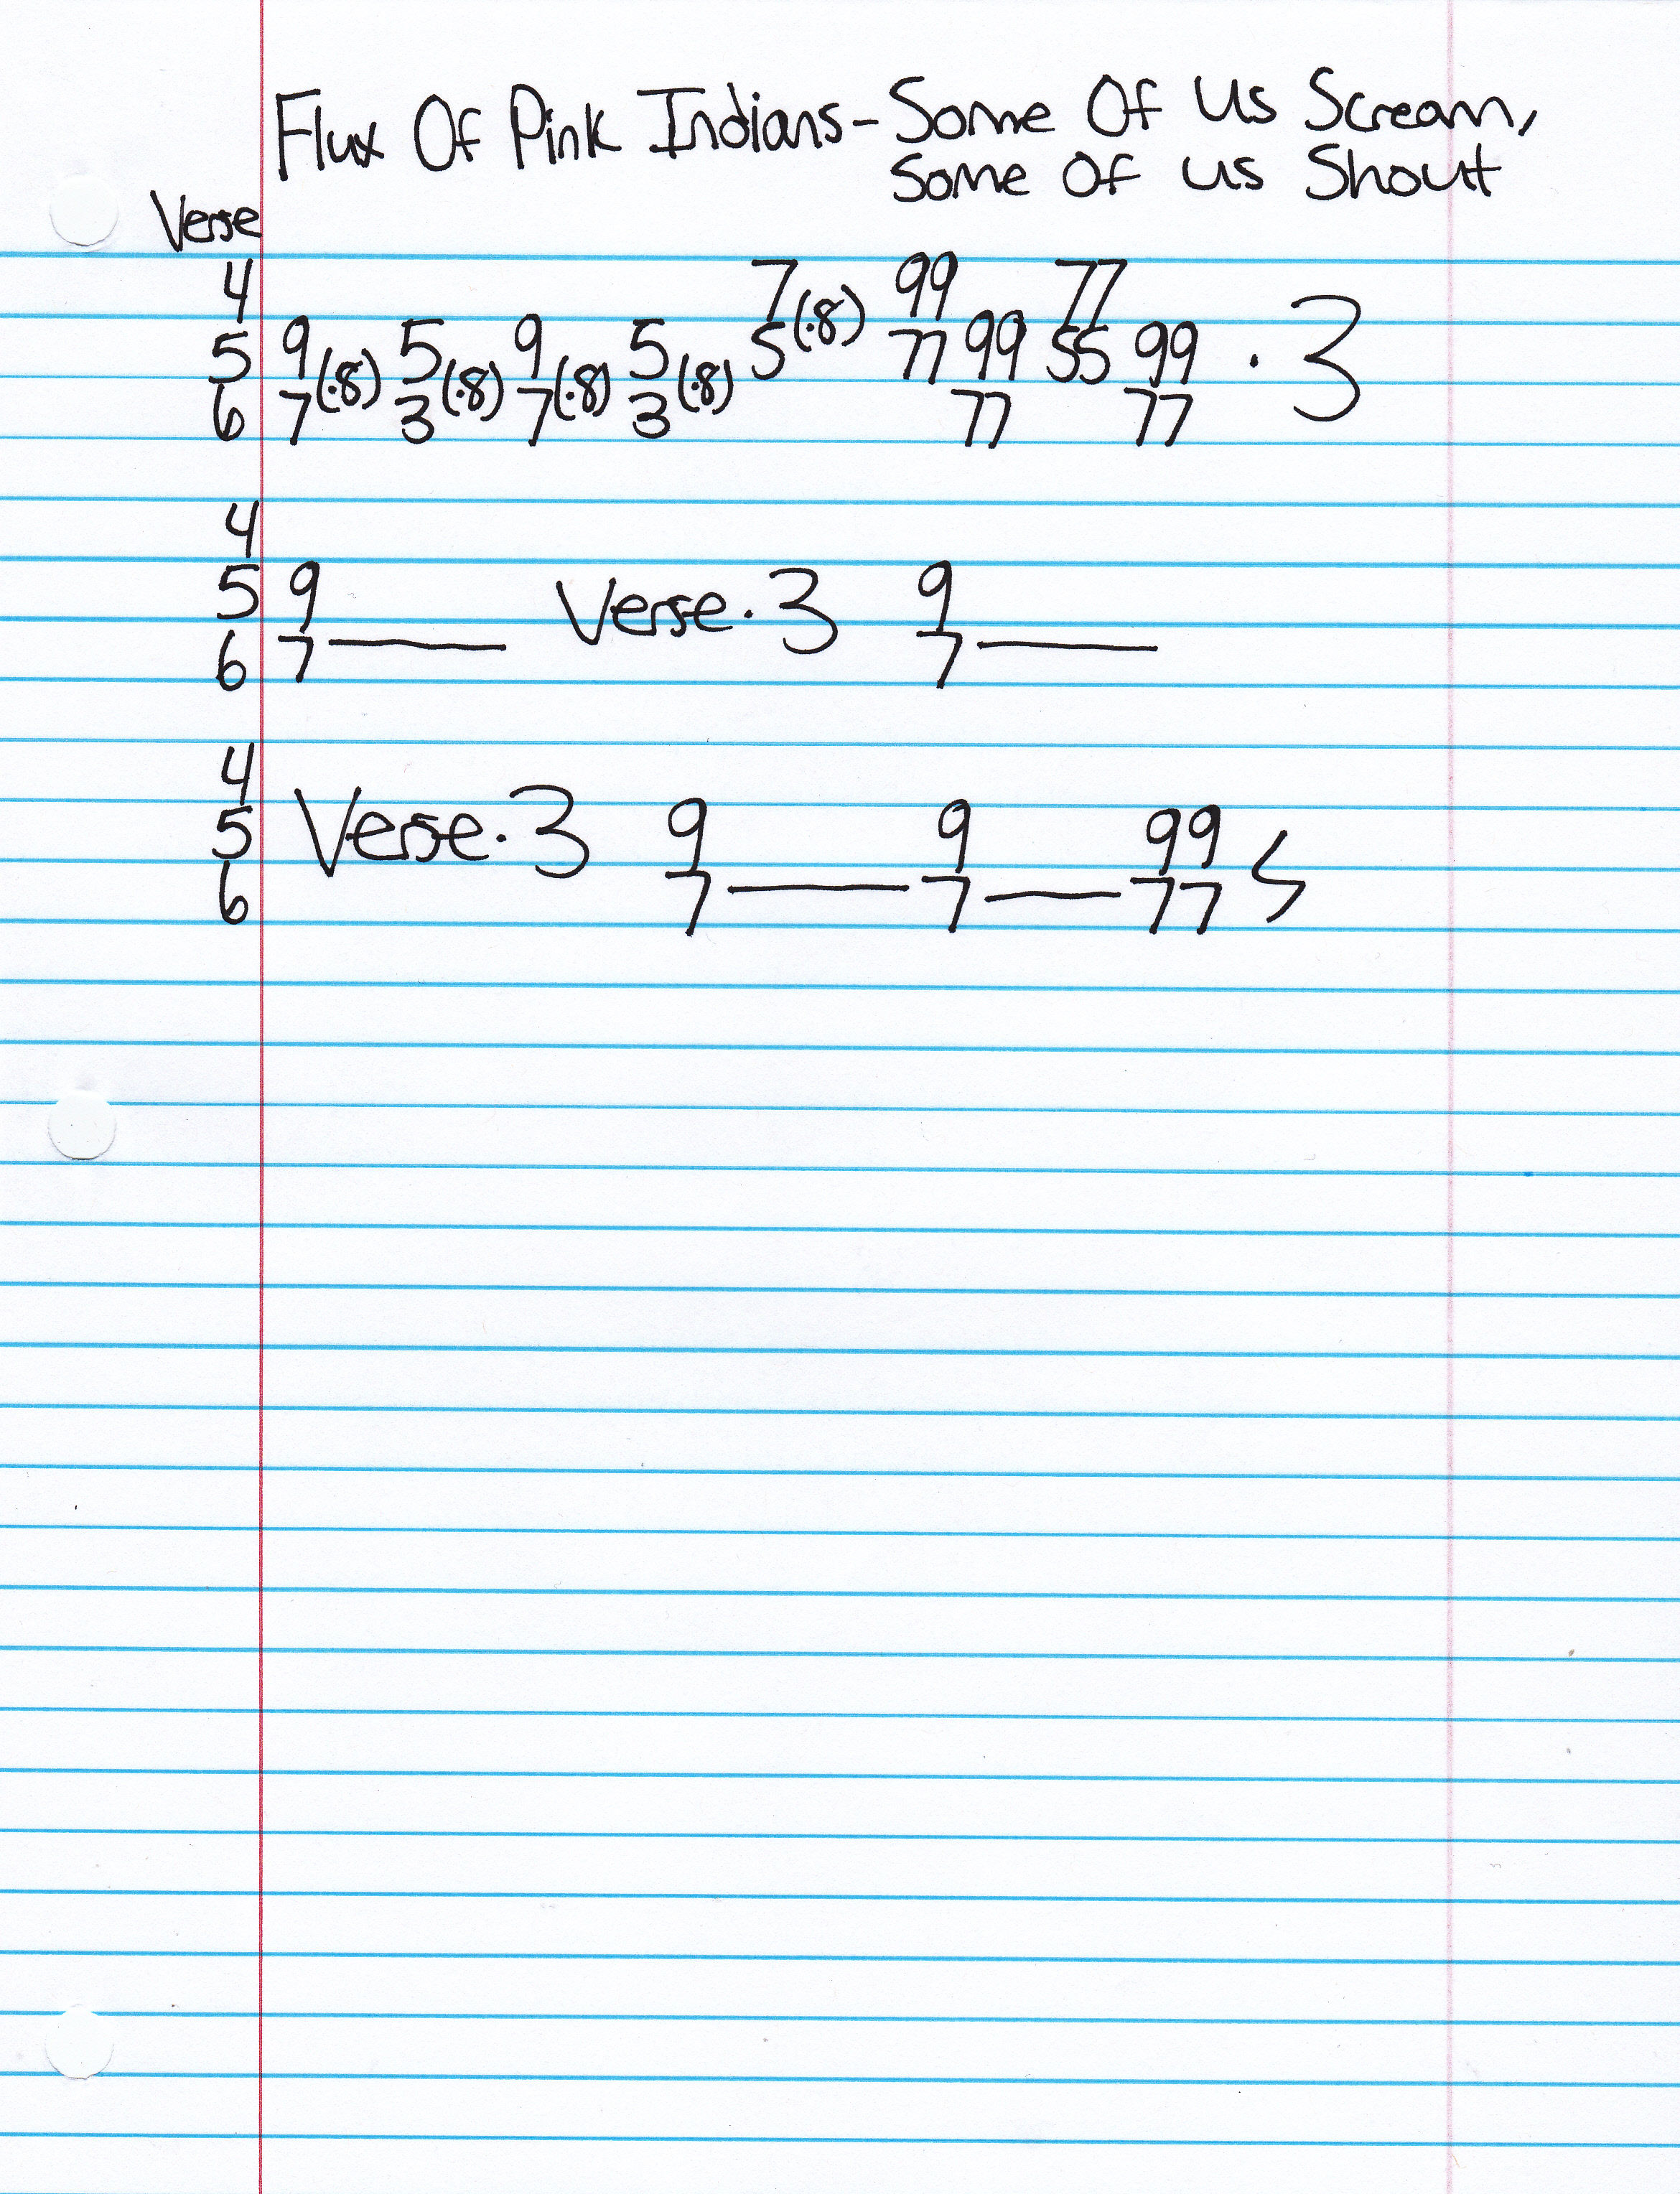 Flux Of Pink Indians - Some Of Us Scream,
Some Of us Shout
Verse
4 7(·8) 99 77
5 9(·8) 5(·8) 9(·8) 5(·8) 5 77 99 55 99 · 3
6 7 3 7 3 77 77
4
5 9 Verse · 3 9
6 7 —— 7 ——
4
5 Verse · 3 9 9 99
6 7 —— 7 —— 77